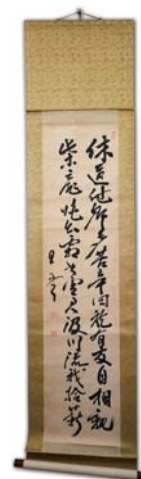 休道他郷多苦辛同袍有友自相親
柴扉暁出霜如雪君汲川流我拾薪